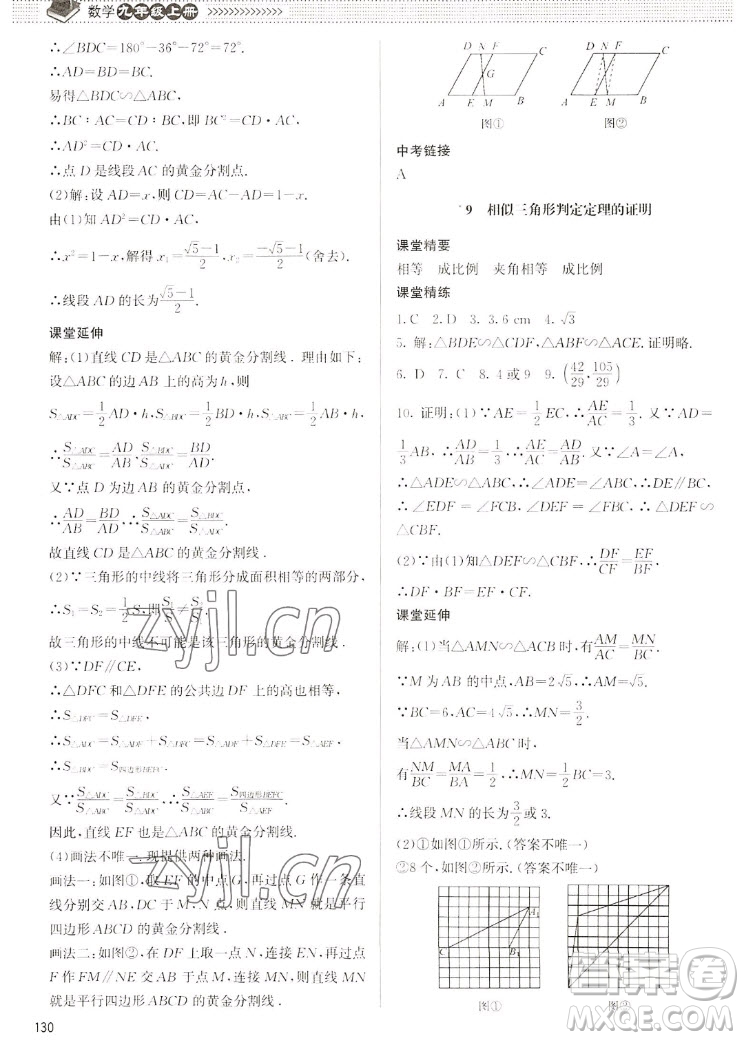 数学九年级上册
∴∠BDC=180°-36°-72°=72°.
∴AD=BD=BC.
易得△BDC∽△ABC,
∴BC∶AC=CD∶BC,即BC²=CD·AC.
∴AD²=CD·AC.
∴点D是线段AC的黄金分割点.
(2)解:设AD=x,则CD=AC-AD=1-x.
由(1)知AD²=CD·AC,
∴x²=1-x,解得x₁=(√5-1)/2,x₂=(-√5-1)/2(舍去).
∴线段AD的长为(√5-1)/2.
课堂延伸
解:(1)直线CD是△ABC的黄金分割线.理由如下:
设△ABC的边AB上的高为h,则
S△ADC=1/2AD·h,S△BDC=1/2BD·h,S△ABC=1/2AB·h,
∴S△ADC/S△ABC=AD/AB,S△BDC/S△ADC=BD/AD.
又∵点D为边AB的黄金分割点,
∴AD/AB=BD/AD.∴S△ADC/S△ABC=S△BDC/S△ADC.
故直线CD是△ABC的黄金分割线.
(2)∵三角形的中线将三角形分成面积相等的两部分,
∴S₁=S₂=1/2S,即S₁/S≠S₂/S₁.
故三角形的中线不可能是该三角形的黄金分割线.
(3)∵DF∥CE,
∴△DFC和△DFE的公共边DF上的高也相等,
∴S△DFC=S△DFE,
∴S△ADC=S△ADF+S△DFC=S△ADF+S△DFE=S△AEF,
∴S△BDC=S四边形BEFC.
又∵S△ADC/S△ABC=S△BDC/S△ADC,∴S△AEF/S△ABC=S四边形BEFC/S△AEF.
因此,直线EF也是△ABC的黄金分割线.
(4)画法不唯一,现提供两种画法.
画法一:如图①,取EF的中点G,再过点G作一条直
线分别交AB,DC于M,N点,则直线MN就是平行
四边形ABCD的黄金分割线.
画法二:如图②,在DF上取一点N,连接EN,再过点
F作FM∥NE交AB于点M,连接MN,则直线MN
就是平行四边形ABCD的黄金分割线.
130
D N F C
G
A E M B
图①
D N F C
A E M B
图②
中考链接
A
9 相似三角形判定定理的证明
课堂精要
相等 成比例 夹角相等 成比例
课堂精练
1.C 2.D 3.3.6 cm 4.√3
5.解:△BDE∽△CDF,△ABF∽△ACE.证明略.
6.D 7.C 8.4或9 9.(42/29,105/29)
10.证明:(1)∵AE=1/2EC,∴AE/AC=1/3.又∵AD=
1/3AB,∴AD/AB=1/3,∴AE/AC=AD/AB.又∵∠A=∠A,
∴△ADE∽△ABC,∴∠ADE=∠ABC,∴DE∥BC,
∴∠EDF=∠FCB,∠DEF=∠CBF,∴△DEF∽
△CBF.
(2)∵由(1)知△DEF∽△CBF,∴DF/CF=EF/BF,
∴DF·BF=EF·CF.
课堂延伸
解:(1)当△AMN∽△ACB时,有AM/AC=MN/BC.
∵M为AB的中点,AB=2√5,∴AM=√5.
∵BC=6,AC=4√5,∴MN=3/2.
当△AMN∽△ABC时,
有NM/BC=MA/BA=1/2,∴MN=1/2BC=3.
∴线段MN的长为3/2或3.
(2)①如图①所示.(答案不唯一)
②8个,如图②所示.(答案不唯一)
A₁
C₁
B₁
图①
图②
zyjl.cn
zyjl.cn
答案卷